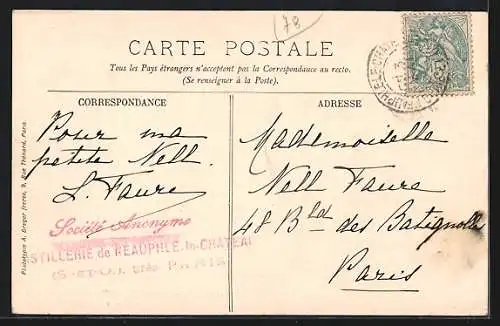 78
CARTE POSTALE
Tous les Pays étrangers n'acceptent pas la Correspondance au recto.
(Se renseigner à la Poste).
CORRESPONDANCE
ADRESSE
Pour ma
petite Nell
L. Faure
Société Anonyme
DISTILLERIE de NEAUPHLE-le-CHATEAU
(S.-et-O.)
Mademoiselle
Nell Faure
48 Bld des Batignolles
Paris
Phototypie A. Breger frères, 9, Rue Thénard, Paris